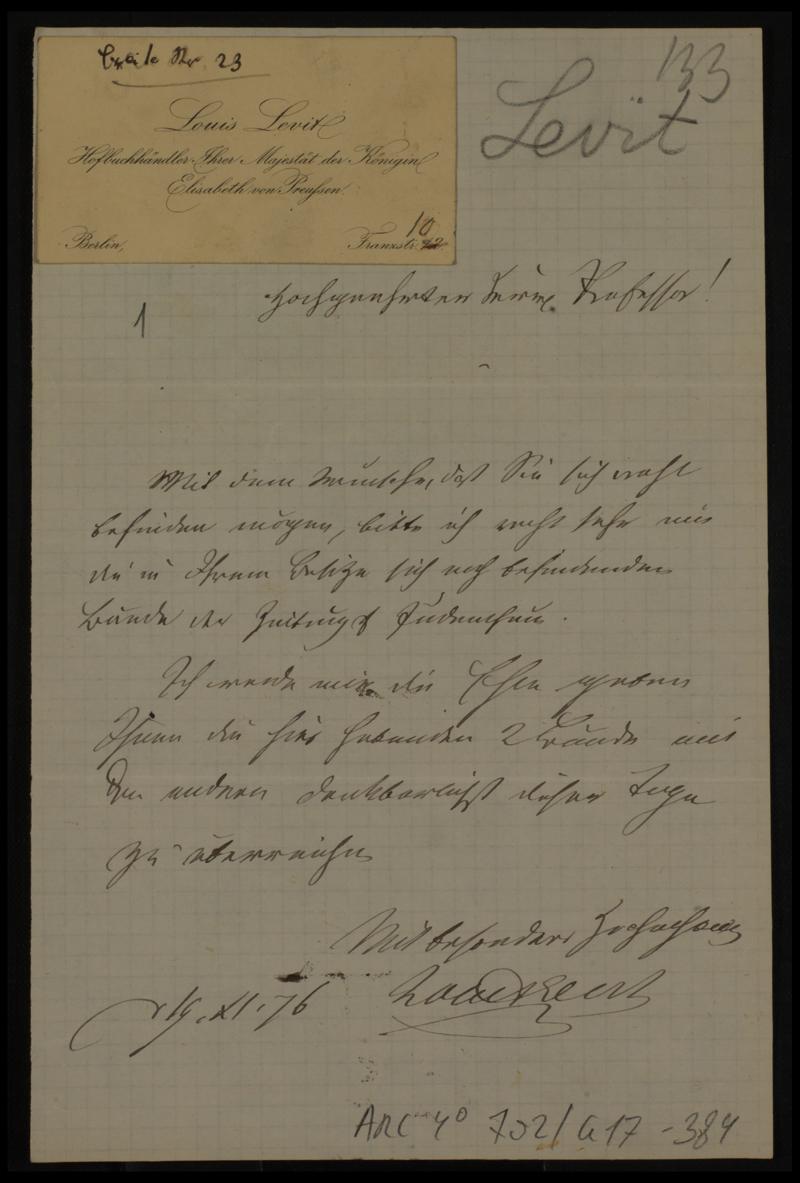 Breite Str 23
Louis Levit
Hofbuchhändler Ihrer Majestät der Königin
Elisabeth von Preußen
Berlin, Franzstr. 10
133
Levit
1
Hochgeehrter Herr Professor!
Mit dem Wunsche, daß Sie sich wohl
befinden mögen, bitte ich recht sehr um
die in Ihrem Besitze sich noch befindenden
Bände der Zeitung Judenthum.
Ich werde mir die Ehre geben
Ihnen die hier habenden 2 Bände mit
den andern dankbarlichst dieser Tage
zu überreichen
Mit besonderer Hochachtung
Louis Levit
19. XI. 76
ARC 4° 792/G17 - 384